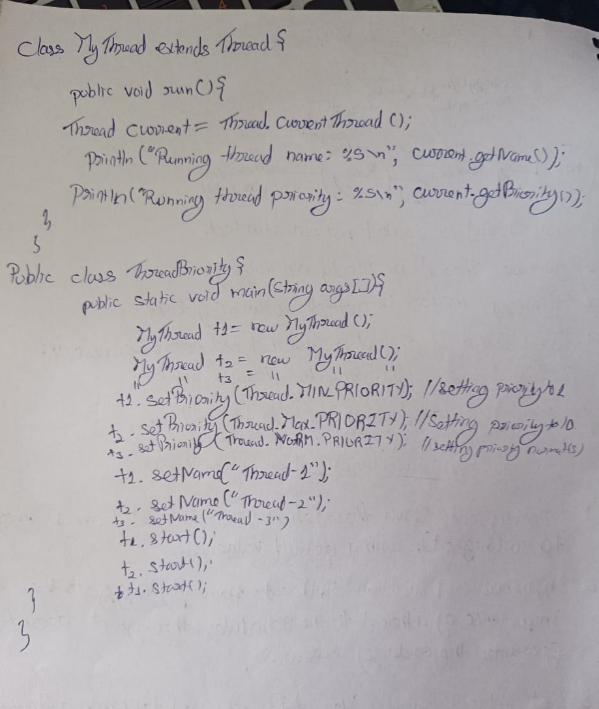 Class MyThread extends Thread {
public void run() {
Thread current = Thread.currentThread ();
Println ("Running thread name: %s\n", current.getName());
Println ("Running thread priority: %s\n", current.getPriority());
}
}
Public class ThreadPriority {
public static void main(String args[]){
MyThread t1 = new MyThread ();
MyThread t2 = new MyThread ();
" " t3 = " " "
t1. setPriority (Thread.MIN.PRIORITY); //setting priority to 1
t2. setPriority (Thread.Max.PRIORITY); //Setting priority to 10
t3. setPriority (Thread.NORM.PRIORITY); //setting priority normal(5)
t1. setName("Thread-1");
t2. setName ("Thread-2");
t3. setName("Thread-3")
t1. start();
t2. start();
t3. start();
}
}